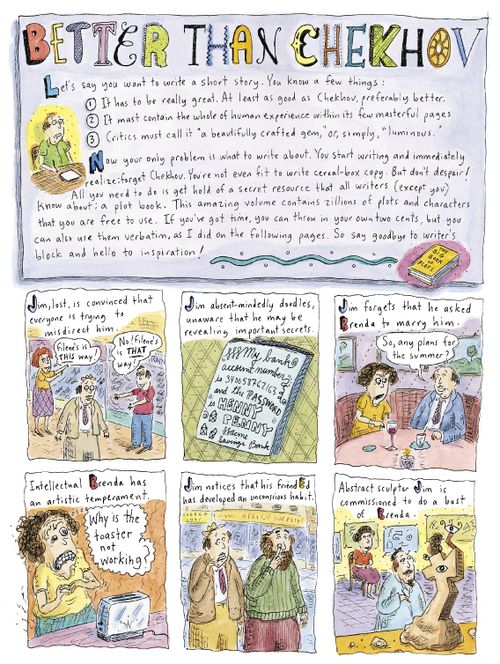 BETTER THAN CHEKHOV
Let's say you want to write a short story. You know a few things:
① It has to be really great. At least as good as Chekhov, preferably better.
② It must contain the whole of human experience within its few masterful pages
③ Critics must call it "a beautifully crafted gem," or, simply, "luminous."
Now your only problem is what to write about. You start writing and immediately
realize: forget Chekhov. You're not even fit to write cereal-box copy. But don't despair!
All you need to do is get hold of a secret resource that all writers (except you)
know about: a plot book. This amazing volume contains zillions of plots and characters
that you are free to use. If you've got time, you can throw in your own two cents, but you
can also use them verbatim, as I did on the following pages. So say goodbye to writer's
block and hello to inspiration!
THE
BIG
BOOK
OF
PLOTS
Jim, lost, is convinced that
everyone is trying to
misdirect him.
Filene's is
THIS way!
No! Filene's
is THAT
way!
Jim absent-mindedly doodles,
unaware that he may be
revealing important secrets.
My bank
account number
and the PASSWORD
is HENNY
PENNY
Acme
Savings Bank
Jim forgets that he asked
Brenda to marry him.
So, any plans for
the summer?
Intellectual Brenda has
an artistic temperament.
Why is the
toaster
not
working?
Jim notices that his friend Ed
has developed an unconscious habit.
Abstract sculptor Jim is
commissioned to do a bust
of Brenda.